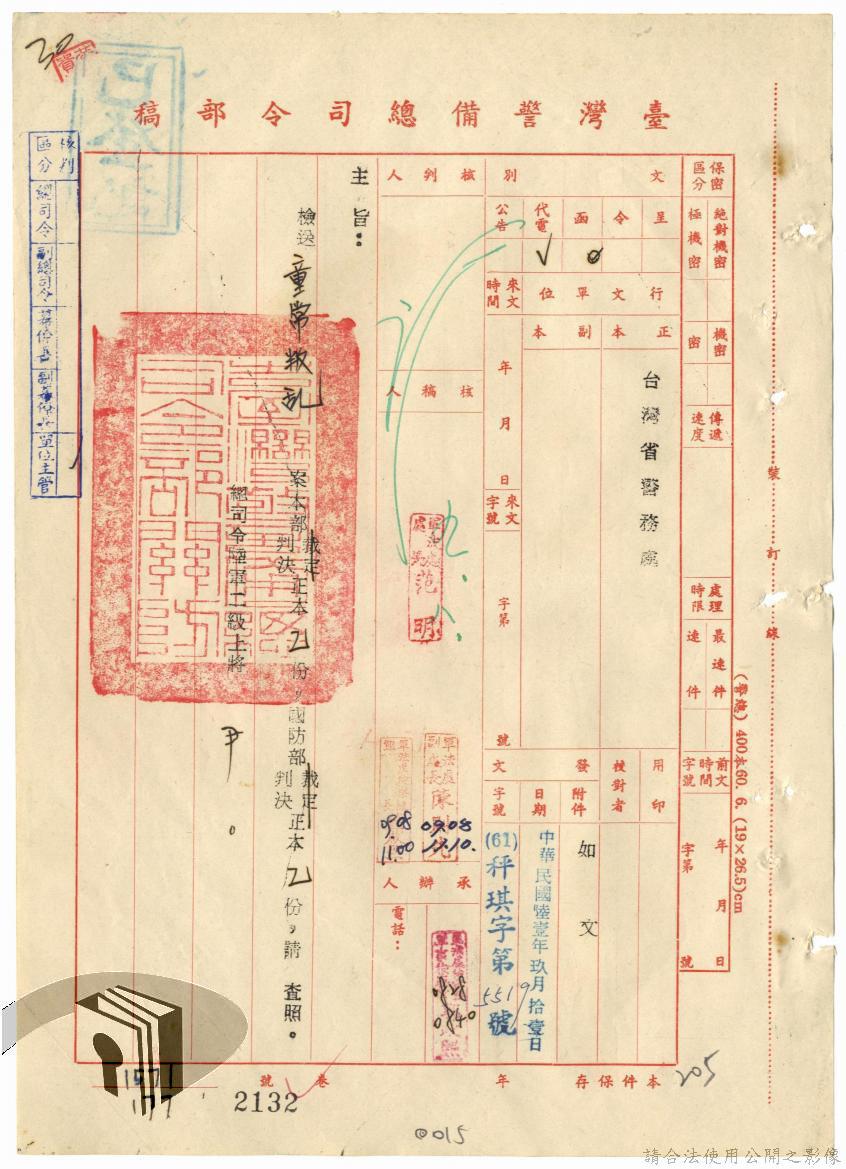 臺灣警備總司令部稿
保密區分
絕對機密
極機密
機密
密
傳遞速度
處理時限
最速件
速件
前文時間字號
年月日
字第
號
文別
呈
令
函
代電
公告
行文單位
正本
副本
台灣省警務處
來文時間
年月日
來文字號
字第
號
用印
校對者
發文
附件
如文
日期
中華民國陸壹年玖月拾壹日
字號
(61)秤琪字第5519號
核判人
核稿人
軍法處處長范明
09.08
11.10.
09.08
11.00
承辦人
電話：
0828
0840
主旨：
檢送童常叛乱案本部裁定判決正本乙份，國防部裁定判決正本乙份，請查照。
總司令陸軍二級上將尹。
核判區分
總司令
副總司令
參謀長
副參謀長
單位主管
裝訂線
(警總) 400本60. 6. (19×26.5)cm
本件保存
年
卷
號
2132
1571
177
205
0015
30
請合法使用公開之影像